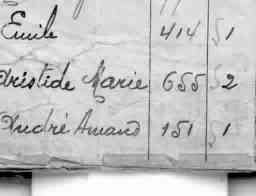 Emile 414 § 1
Aristide Marie 655 § 2
André Amand 151 § 1